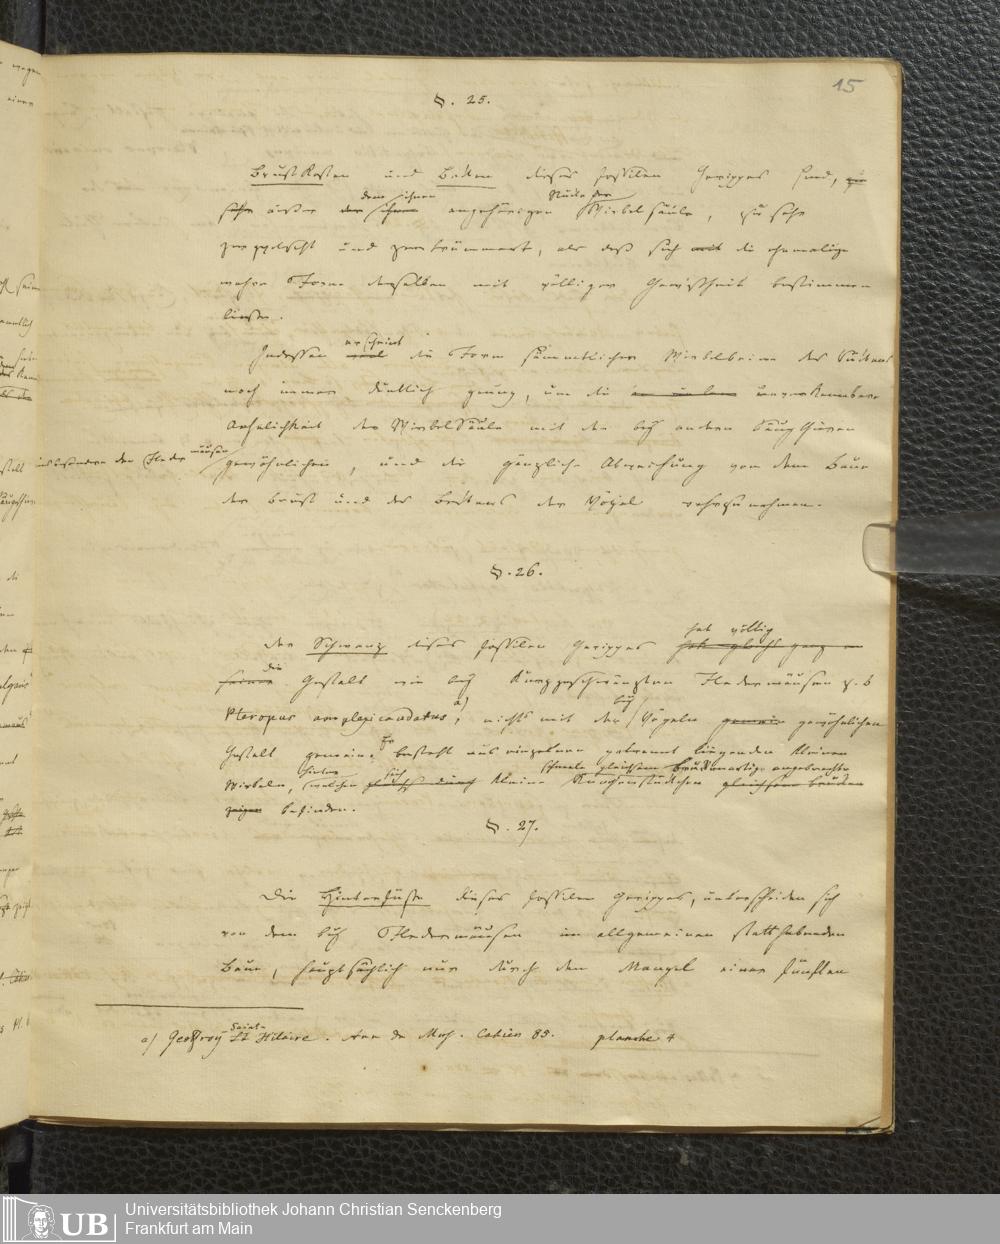 15
§. 25.
Brustkasten und Becken dieses fossilen Gerippes sind,
außer dem ihnen angehörigen Stücke der Wirbelsäule, zu sehr
zerquetscht und zertrümmert, als daß sich die ehemalige
wahre Form derselben mit völliger Gewissheit bestimmen
liesse.
Indessen erscheint die Form sämmtlicher Wirbelbeine des Rückens
noch immer deutlich genug, um die unverkennbare
Aehnlichkeit der Wirbelsäule mit der bey andern Säugthieren
insbesondere den Fledermäusen gewöhnlichen, und die gänzliche Abweichung von dem Baue
der Brust und des Beckens der Vögel wahrzunehmen.
§. 26.
Der Schwanz dieses fossilen Gerippes hat völlig
die Gestalt wie bey kurzgeschwänzten Fledermäusen z. b
Pteropus amplexicaudatus a), nichts mit der bey Vögeln gewöhnlichen
Gestalt gemein. Er besteht aus einzelnen getrennt liegenden kleinen
Wirbeln, hinter welchen sich kleine schmale gleichsam brückenartig angebrachte Knochenstückchen
befinden.
§. 27.
Die Hinterfüsse dieses fossilen Gerippes, unterscheiden sich
von dem bey Fledermäusen im allgemeinen statthabenden
Baue, hauptsächlich nur durch den Mangel einer fünften
a) Geoffroy Saint-Hilaire. Ann du Mus. Cahier 85. planche 4
UB
Universitätsbibliothek Johann Christian Senckenberg
Frankfurt am Main